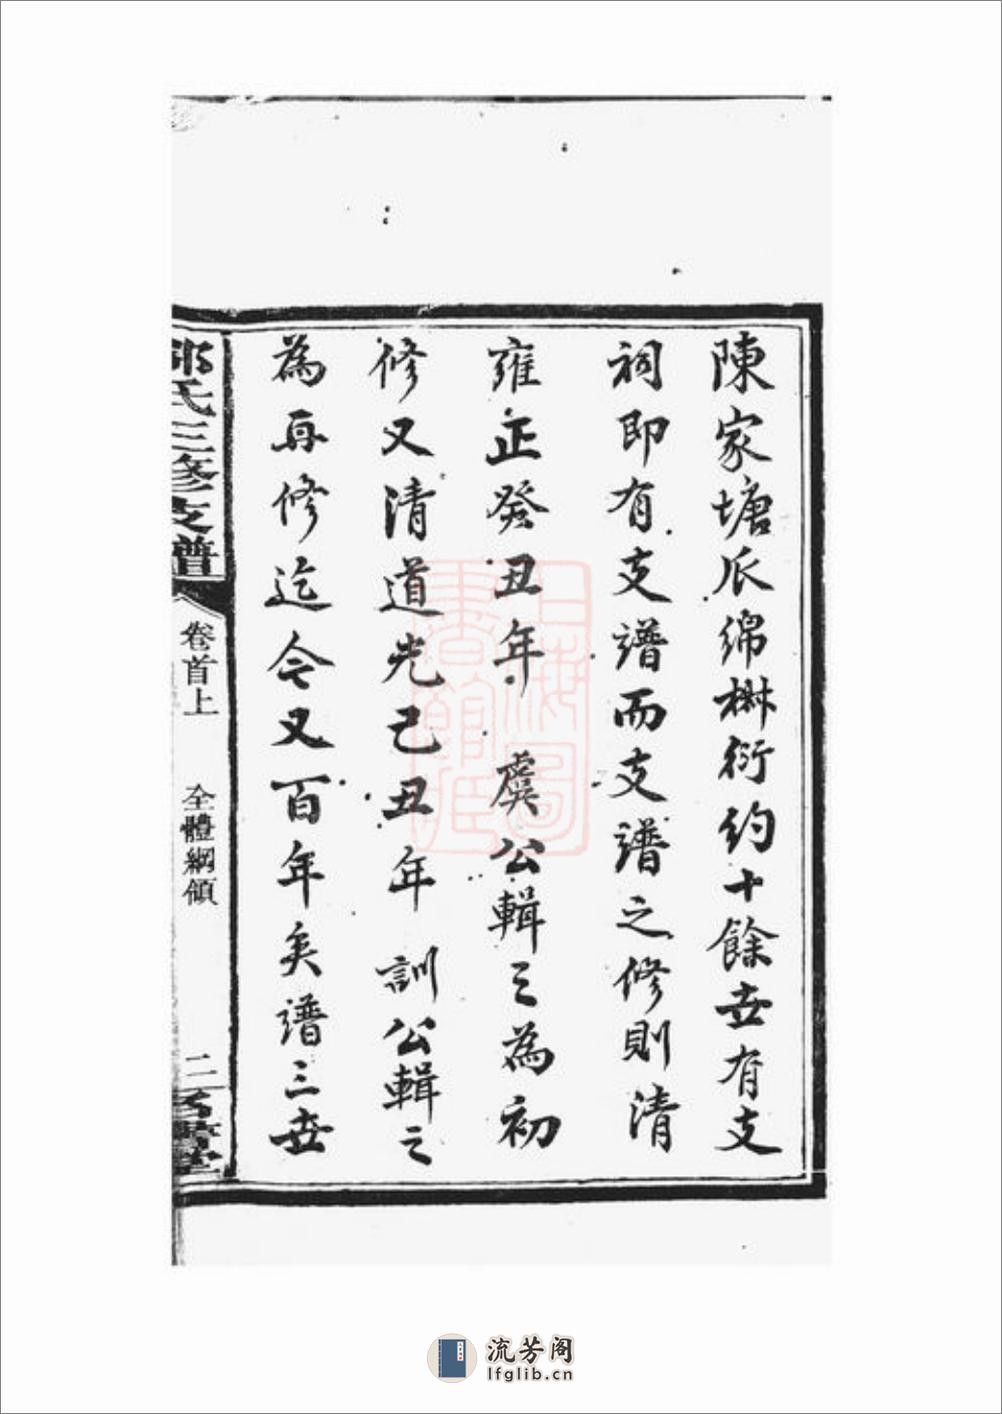 陳家塘瓜綿椒衍約十餘世有支
祠即有支譜而支譜之修則清
雍正癸丑年 虞公輯之為初
修又清道光己丑年 訓公輯之
為再修迄今又百年矣譜三世
氏三修支譜
卷首上
全體綱領
二
上海圖書館藏
流芳阁
lfglib.cn